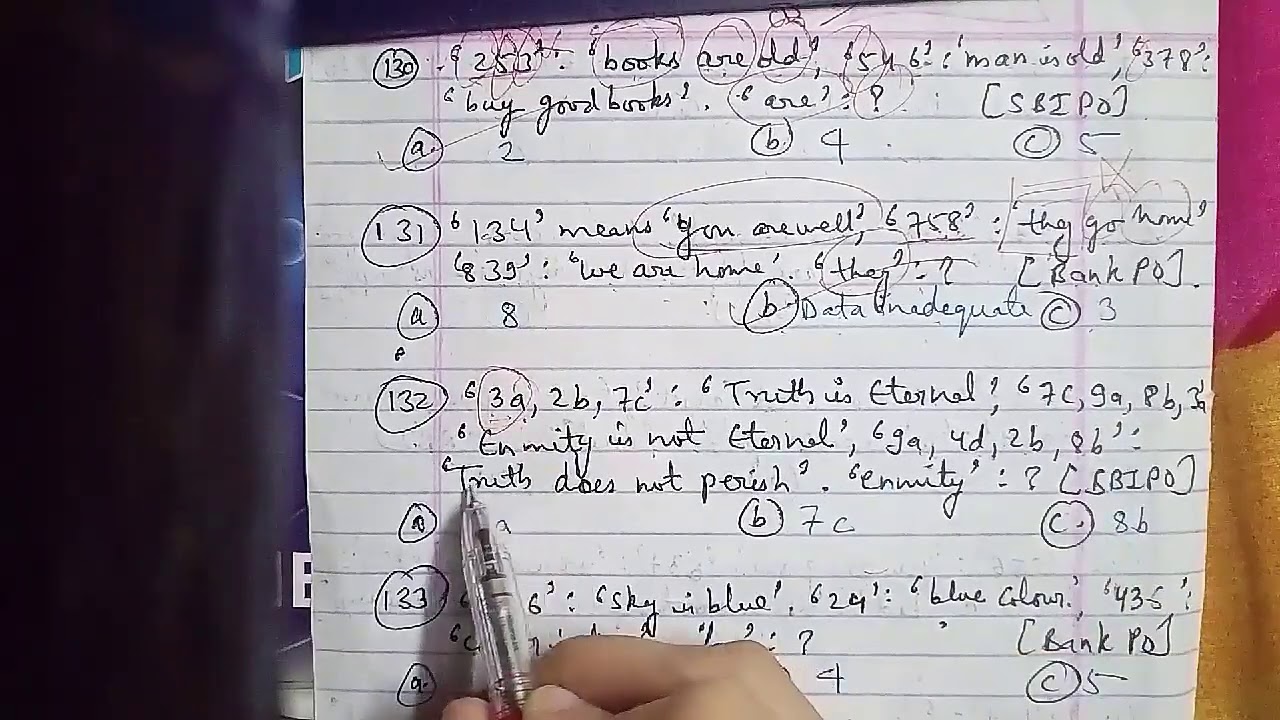 130 '253' : 'books are old', '546' : 'man is old', '378' :
'buy good books'. 'are' : ? [SBI PO]
a 2 b 4 c 5
131 '134' means 'you are well', '758' : 'they go home'
'839' : 'we are home'. 'they' : ? [Bank PO].
a 8 b Data inadequate c 3
132 '3a, 2b, 7c' : 'Truth is Eternal', '7c, 9a, 8b, 3a'
'Enmity is not Eternal', '9a, 4d, 2b, 8b' :
'Truth does not perish'. 'enmity' : ? [SBI PO]
a a b 7c c 8b
133 6' : 'sky is blue', '24' : 'blue colour', '435' :
? [Bank PO]
a 4 c 5